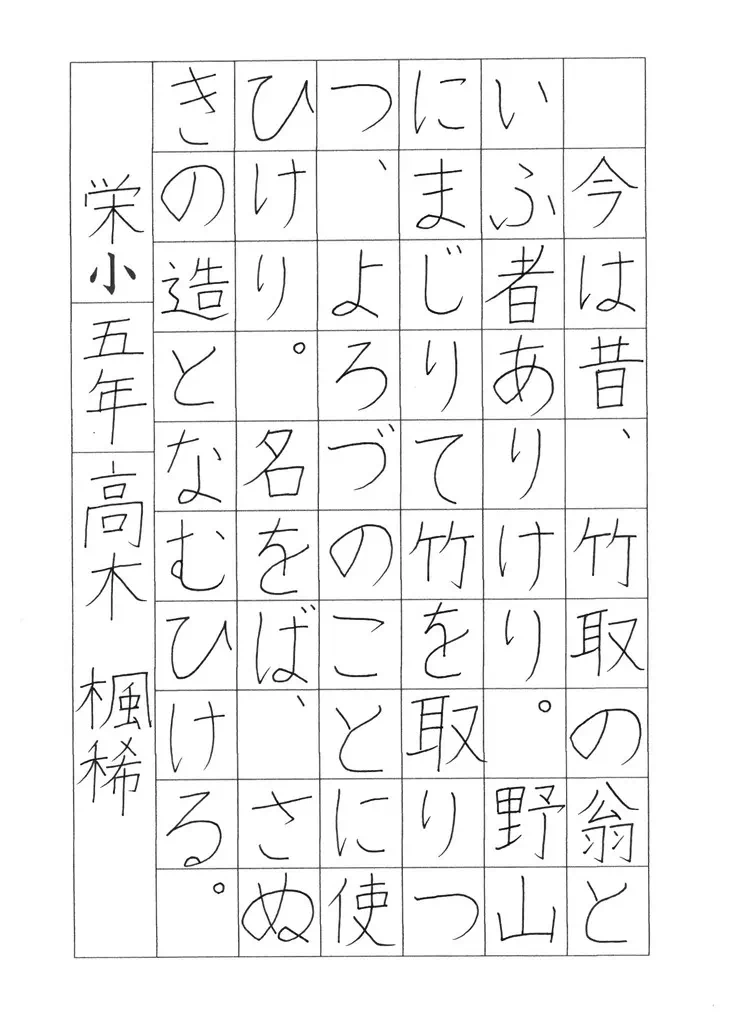 今は昔、竹取の翁と
いふ者ありけり。野山
にまじりて竹を取りつ
つ、よろづのことに使
ひけり。名をば、さぬ
きの造となむひける。
栄小 五年 高木 楓稀